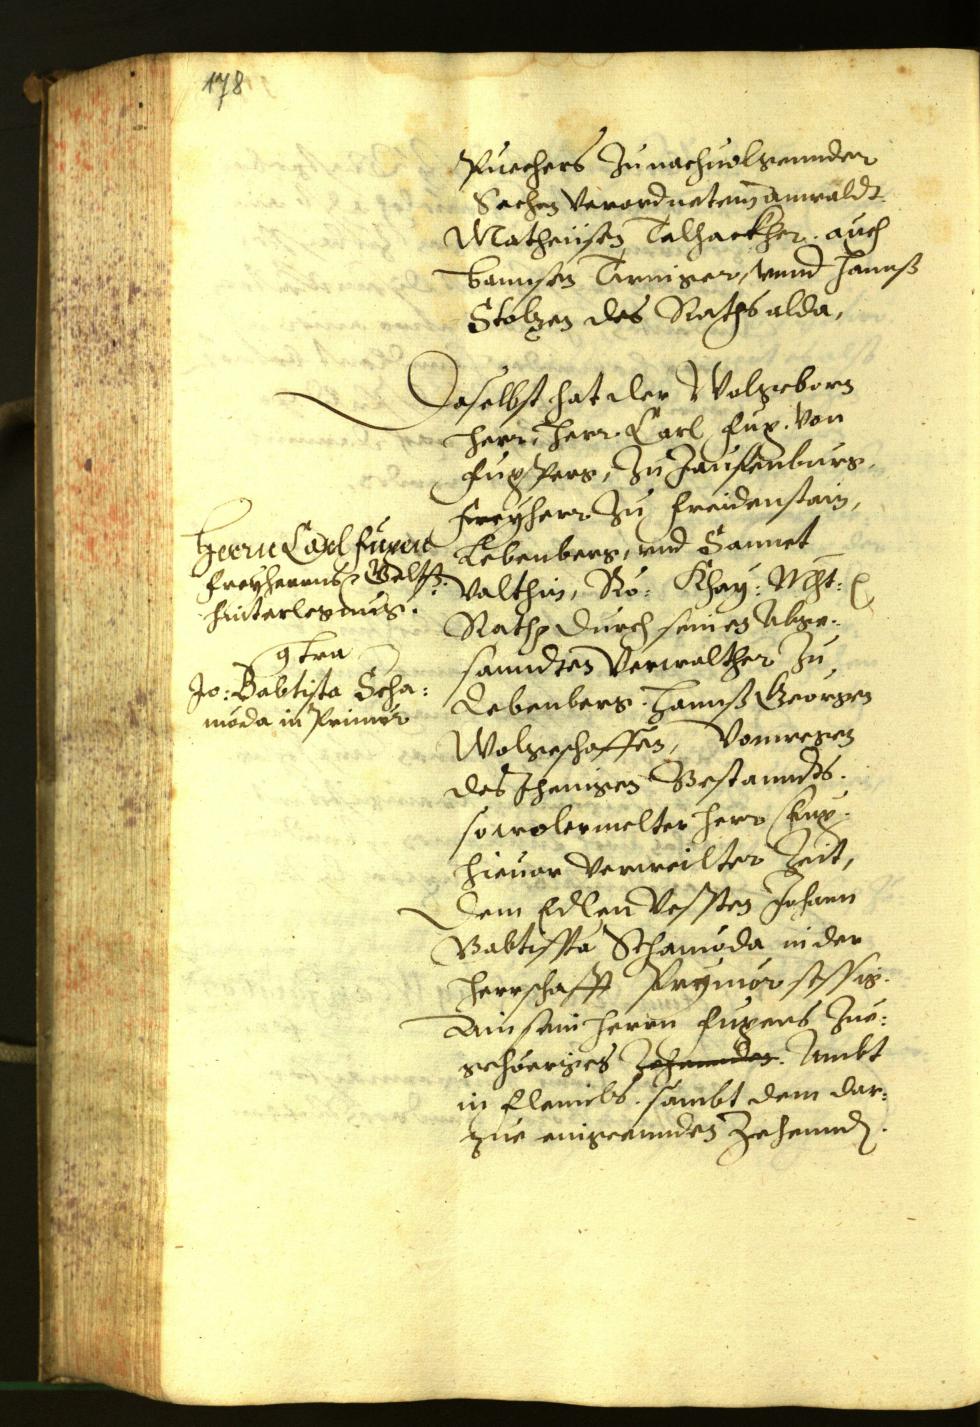 178
Puechers zu nachuolgennder
Sachen verordnetem anwaldt
Matheüsen Talhackher. auch
Tarniger, vnnd Hannß
Stolzen des Raths alda,
Daselbst hat der Wolgeborn
Herr, Herr Carl Fux. von
Fuxperg, zu Jaufenburg,
Freyherr zu Freidenstain,
Lebenberg, vnd Sannct
Valthin, Rö: Khay: Mt:
Rath, durch seinen Abge-
sanndten Verwalther zu
Lebenberg. Hannß Georgen
Wolgeschaffen, Vonwegen
des Jhenigen Bestanndts.
so wolermelter Herr Fux.
hieuor verweilter Zeit,
dem Edlen Vessten Johann
Babtissta Schamoda in der
Herrschafft Prymör sessig.
Ain sein Herrn Fuxens zue:
gehöeriges Zehennden. Ambt
in Fleimbs. sambt dem dar:
zue aigeennden Zehenndt.
Herrn Carl Fuxen
Freyherrns
hinterlegung.
9tra
Jo: Babtista Scha:
moda in Primör